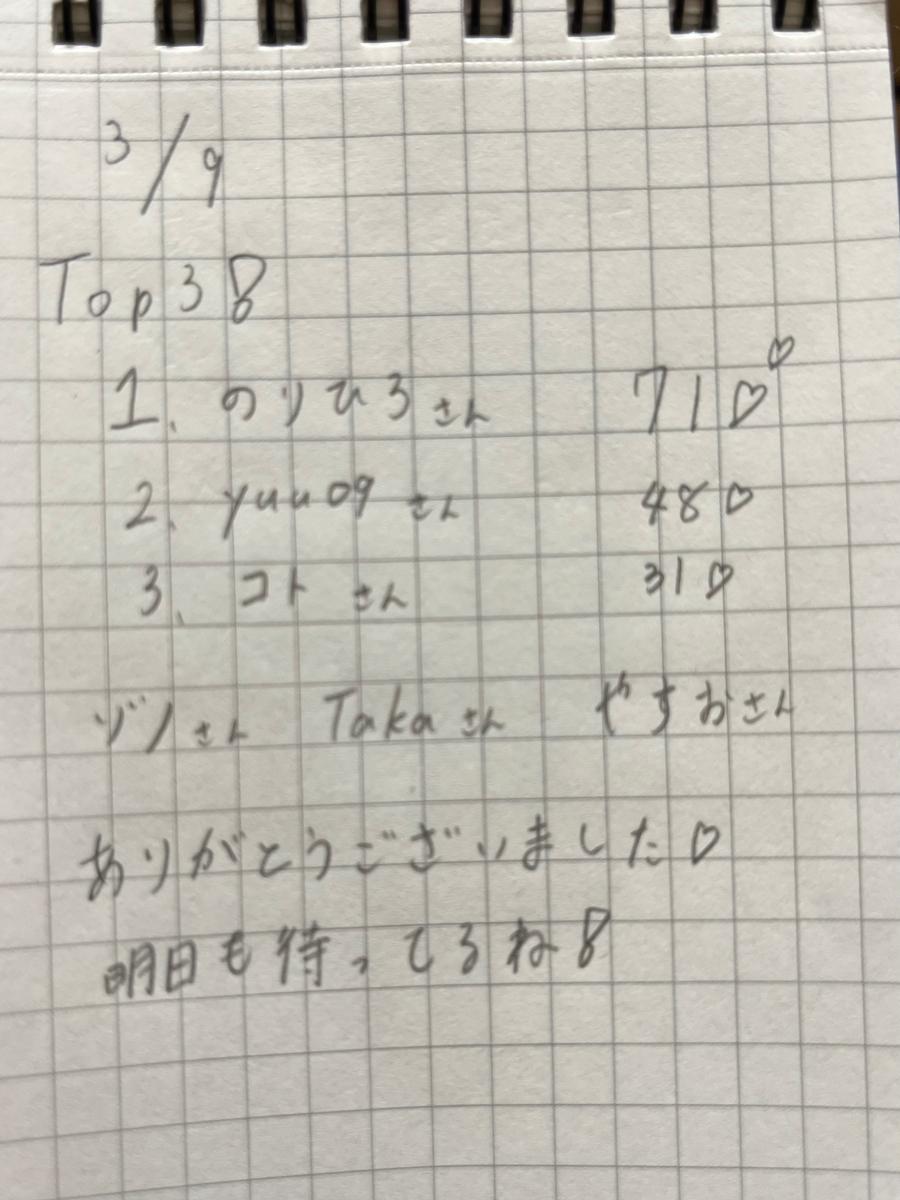 3/9
Top3!
1. のりひろさん 71♡♡
2. yuu09さん 48♡
3. コトさん 31♡
ゾノさん Takaさん やすおさん
ありがとうございました♡
明日も待ってるね!